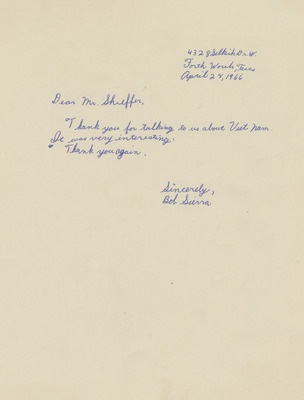 4328 Selkirk Dr. W.
Forth Worth, Texas
April 24, 1966
Dear Mr. Shieffer,
Thank you for talking to us about Viet Nam
It was very interesting.
Thank you again.
Sincerely,
Bob Sierra